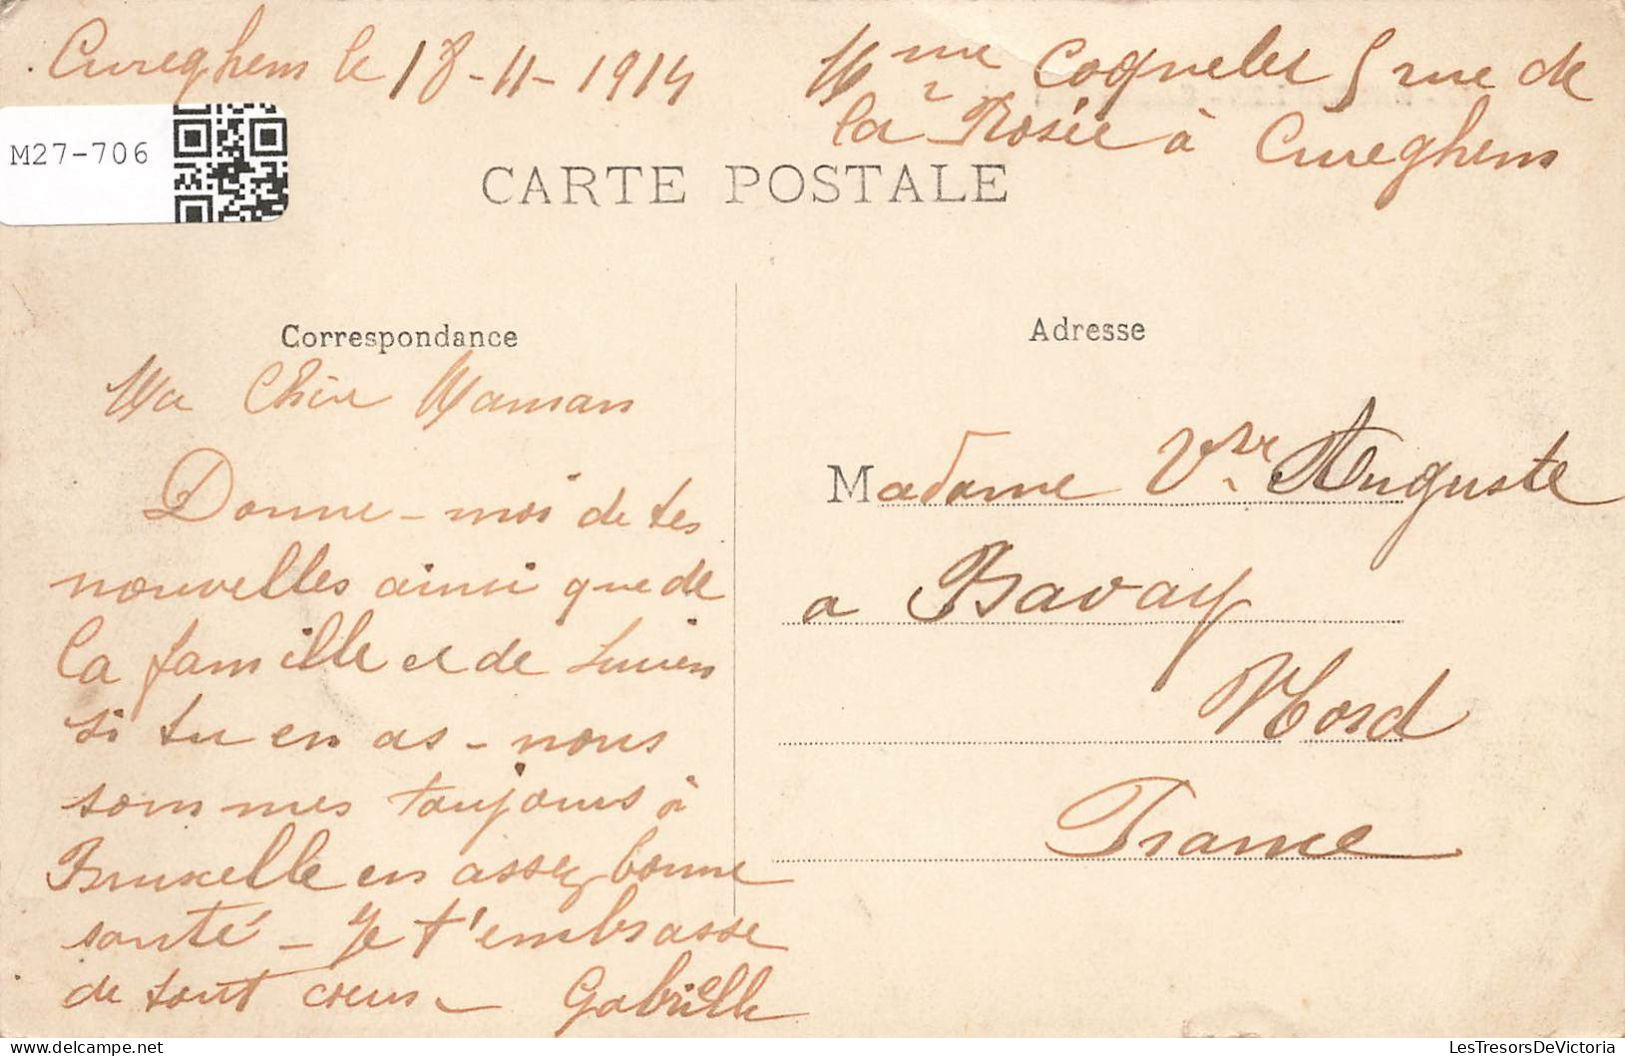 Cureghem le 18-11-1914
Mme Coquelet 5 rue de
la Rosée à Cureghem
M27-706
CARTE POSTALE
Correspondance
Adresse
Ma Chère Maman
Donne-moi de tes
nouvelles ainsi que de
la famille et de Lucien
si tu en as - nous
sommes toujours à
Bruxelle en assez bonne
santé - Je t'embrasse
de tout coeur - Gabrielle
Madame Vve Auguste
a Bavay
Nord
France
LesTresorsDeVictoria